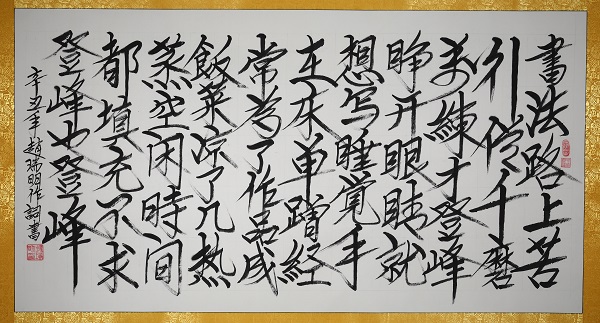 書法路上苦
行修千磨
万練才登峰
睁开眼睛就
想写睡覺手
在床单蹭経
常为了作品成
飯菜凉了几热
蒸空闲時间
都填充不求
登峰也登峰
辛丑年趙瑞明作詞書